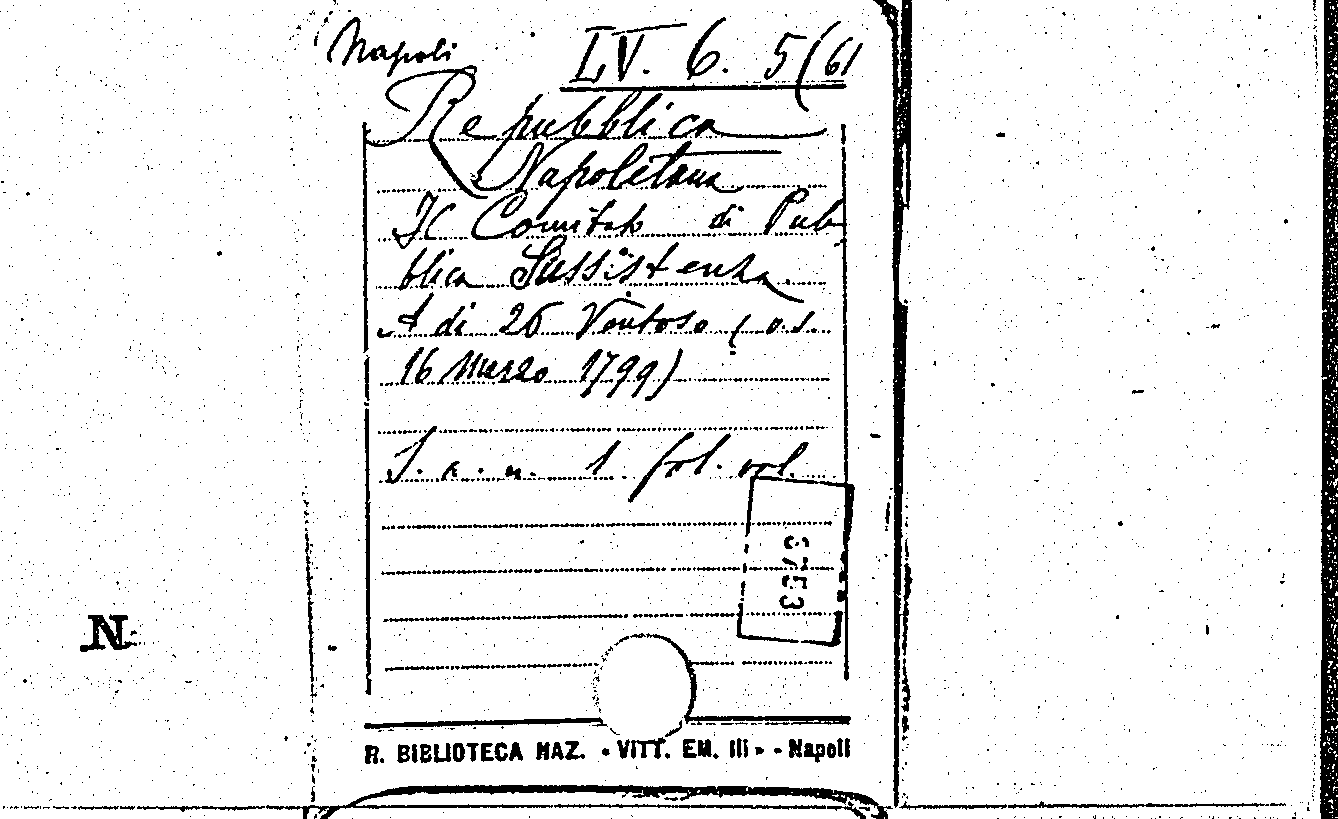 Napoli
LV. 6. 5(61
Repubblica
Napoletana
Il Comitato di Pub-
blica Sussistenza.
A di 26 Ventoso (v.s.
16 Marzo 1799)
S. a. n. 1 fol. vol.
3753
N
R. BIBLIOTECA NAZ. « VITT. EM. III » - Napoli